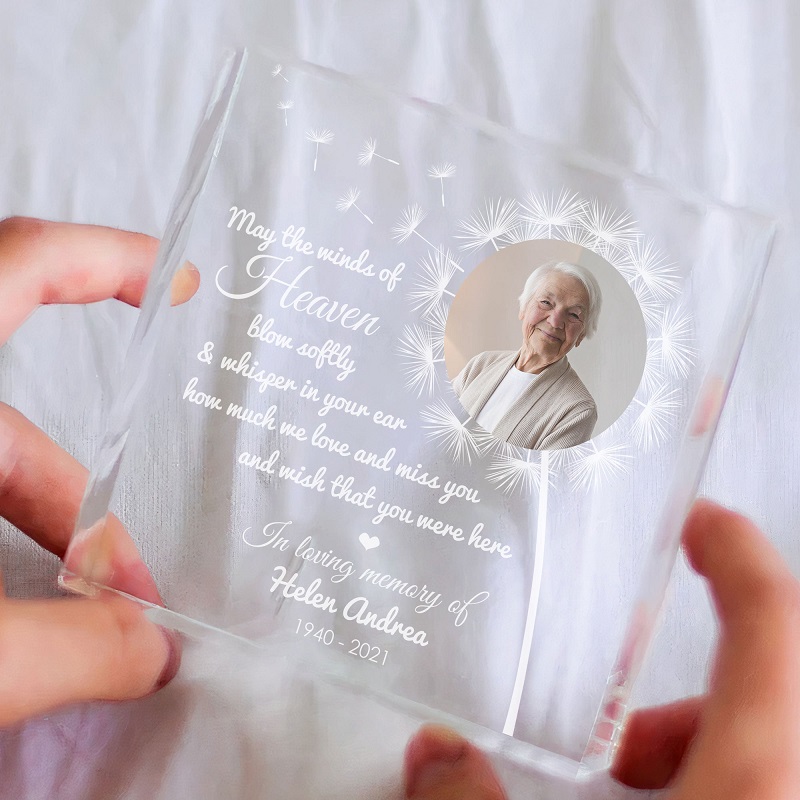 May the winds of
Heaven
blow softly
& whisper in your ear
how much we love and miss you
and wish that you were here
In loving memory of
Helen Andrea
1940 - 2021